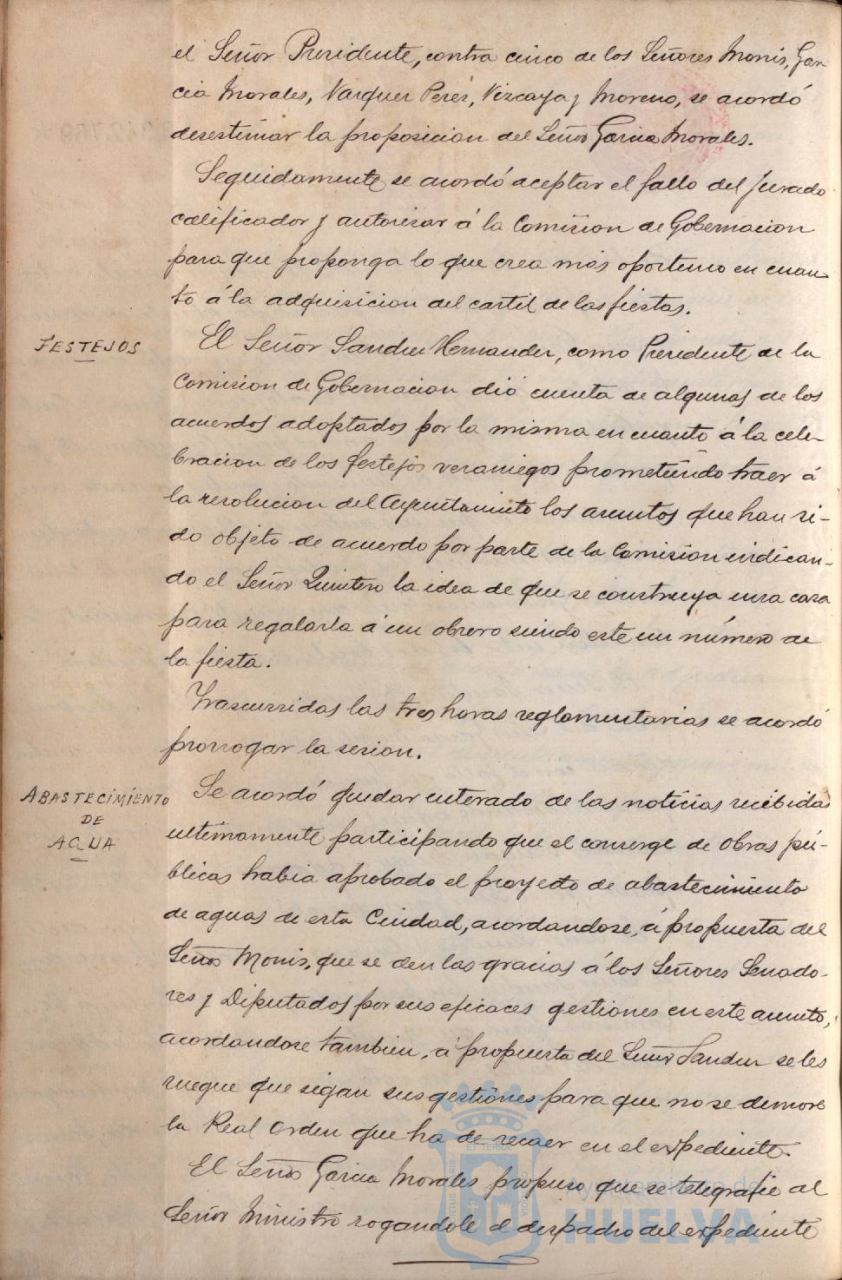 el Señor Presidente, contra cinco de los Señores Monis, Gar
cia Morales, Vazquez Perez, Vizcaya y Moreno, se acordó
desestimar la proposicion del Señor Garcia Morales.
Seguidamente se acordó aceptar el fallo del Jurado
calificador y autorizar á la Comision de Gobernacion
para que proponga lo que crea más oportuno en cuan
to á la adquisicion del cartel de las fiestas.
FESTEJOS
El Señor Sanchez Hernandez, como Presidente de la
Comision de Gobernacion dió cuenta de algunas de los
acuerdos adoptados por la misma en cuanto á la cele-
bracion de los festejos veraniegos prometiendo traer á
la resolucion del Ayuntamiento los asuntos que han si-
do objeto de acuerdo por parte de la Comision indican-
do el Señor Quintero la idea de que se construya una casa
para regalarla á un obrero siendo este un número de
la fiesta.
Trascurridas las tres horas reglamentarias se acordó
prorrogar la sesion.
ABASTECIMIENTO
DE
AGUA
Se acordó quedar enterado de las noticias recibidas
ultimamente participando que el consejo de Obras pú-
blicas habia aprobado el proyecto de abastecimiento
de aguas de esta Ciudad, acordandose, á propuesta del
Señor Monis, que se den las gracias á los Señores Senado-
res y Diputados por sus eficaces gestiones en este asunto,
acordandose tambien, á propuesta del Señor Sanchez se les
ruegue que sigan sus gestiones para que no se demore
la Real Orden que ha de recaer en el expediente.
El Señor Garcia Morales propuso que se telegrafie al
Señor Ministro rogandole el despacho del expediente
Ayuntamiento de
HUELVA